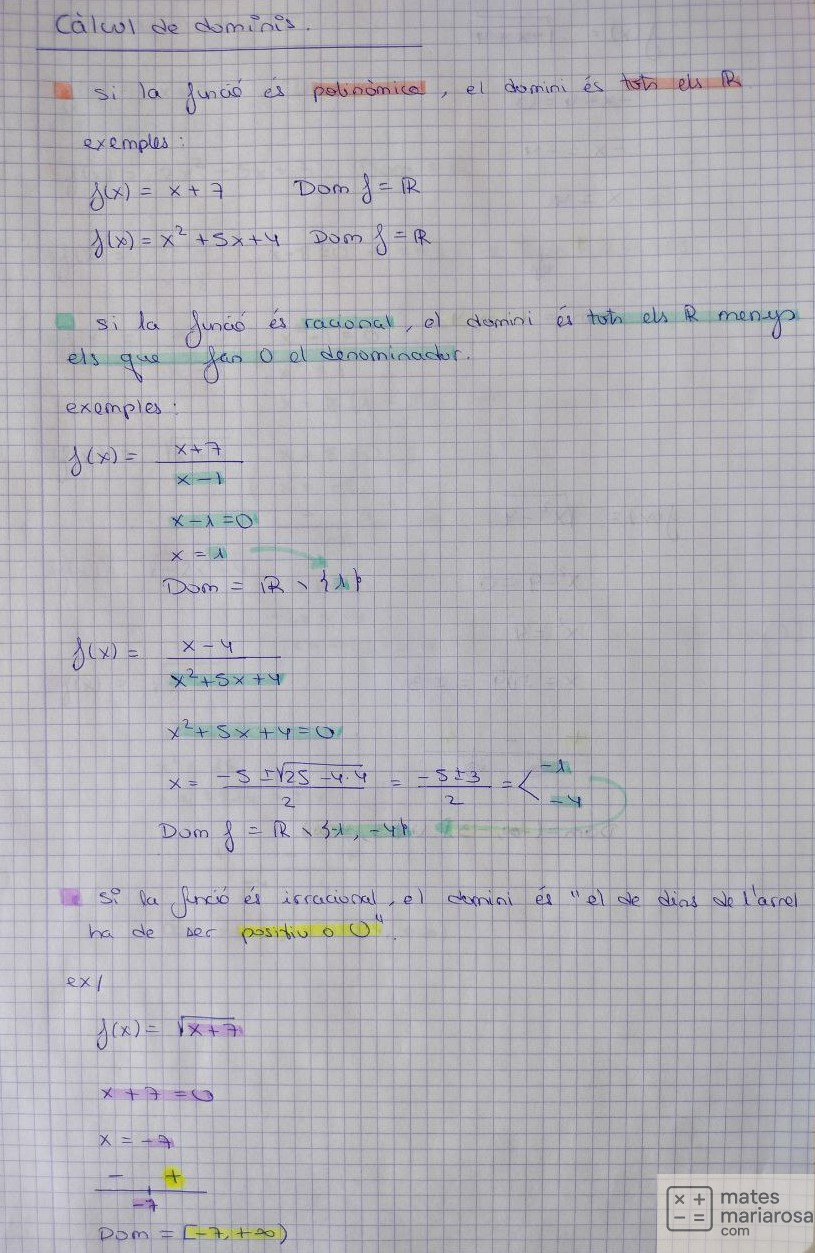 Càlcul de dominis.
Si la funció és polinòmica, el domini és tots els ℝ
exemples:
f(x) = x + 7 Dom f = ℝ
f(x) = x² + 5x + 4 Dom f = ℝ
Si la funció és racional, el domini és tots els ℝ menys
els que fan 0 el denominador.
exemples:
f(x) = x+7 / x-1
x-1=0
x = 1
Dom = ℝ \ {1}
f(x) = x-4 / x²+5x+4
x²+5x+4=0
x = -5 ± √25-4·4 / 2 = -5±3 / 2 = < -1 -4
Dom f = ℝ \ {-1, -4}
Si la funció és irracional, el domini és "el de dins de l'arrel
ha de ser positiu o 0".
ex/
f(x) = √x+7
x + 7 = 0
x = -7
- +
-7
Dom = [-7, +∞)
x + - =
mates
mariarosa
com